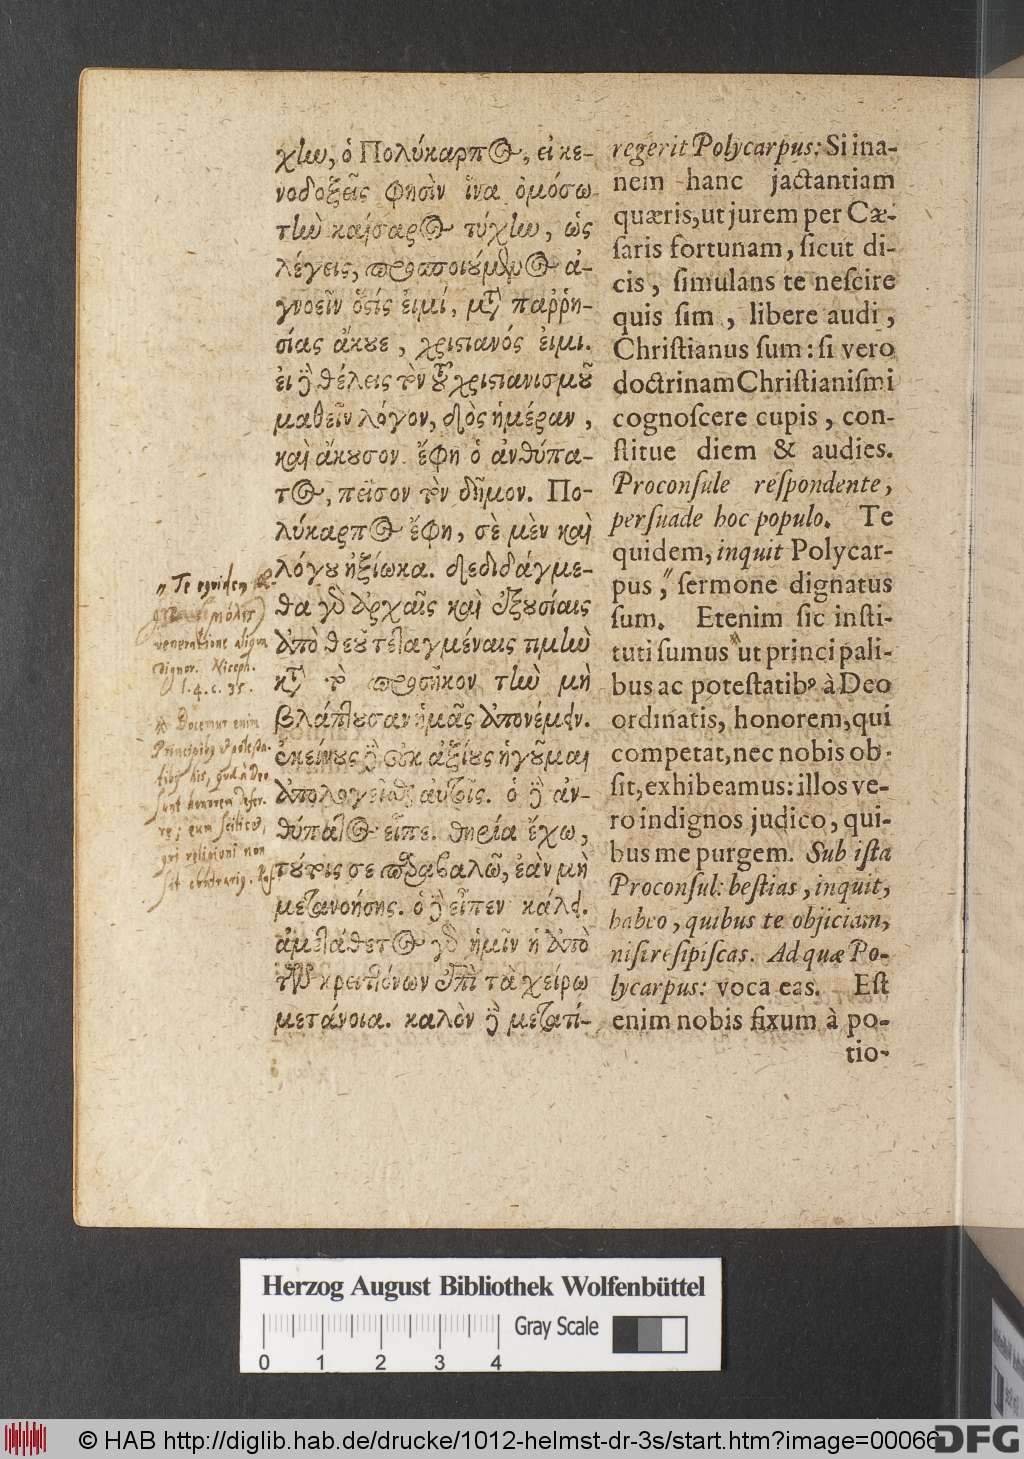 χίω, ὁ Πολύκαρπος, εἰ κε-
νοδοξεῖς φησὶν ἵνα ὀμόσω
τὴν καίσαρος τύχην, ὡς
λέγεις, προσποιούμενος ἀ-
γνοεῖν ὅστις εἰμί, μετὰ παῤῥη-
σίας ἄκουε, χριστιανός εἰμι.
εἰ δὲ θέλεις τὸν τοῦ χριστιανισμοῦ
μαθεῖν λόγον, δὸς ἡμέραν,
καὶ ἄκουσον. ἔφη ὁ ἀνθύπα-
τος, πεῖσον τὸν δῆμον. Πο-
λύκαρπος ἔφη, σὲ μὲν καὶ
λόγου ἠξίωκα. δεδιδάγμε-
θα γὰρ ἀρχαῖς καὶ ἐξουσίαις
ἀπὸ θεοῦ τεταγμέναις τιμὴν
κατὰ τὸ προσῆκον τὴν μὴ
βλάπτουσαν ἡμᾶς ἀπονέμειν.
ἐκείνους δὲ οὐκ ἀξίους ἡγοῦμαι
ἀπολογεῖσθαι αὐτοῖς. ὁ δὲ ἀν-
θύπατος εἶπε. θηρία ἔχω,
τούτοις σε παραβαλῶ, ἐὰν μὴ
μετανοήσης. ὁ δὲ εἶπεν κάλει.
ἀμετάθετος γὰρ ἡμῖν ἡ ἀπὸ
τῶν κρειττόνων ἐπὶ τὰ χείρω
μετάνοια. καλὸν δὲ μετατί-
regerit Polycarpus: Si ina-
nem hanc jactantiam
quæris, ut jurem per Cæ-
saris fortunam, sicut di-
cis, simulans te nescire
quis sim, libere audi,
Christianus sum: si vero
doctrinam Christianismi
cognoscere cupis, con-
stitue diem & audies.
Proconsule respondente,
persuade hoc populo. Te
quidem, inquit Polycar-
pus, sermone dignatus
sum. Etenim sic insti-
tuti sumus ut principali-
bus ac potestatibꝰ à Deo
ordinatis, honorem, qui
competat, nec nobis ob-
sit, exhibeamus: illos ve-
ro indignos judico, qui-
bus me purgem. Sub ista
Proconsul: bestias, inquit,
habeo, quibus te objiciam,
nisi resipiscas. Ad quæ Po-
lycarpus: voca eas. Est
enim nobis fixum à po-
tio-
" Te equidem
veneratione aliqua
dignor. Niceph.
l. 4. c. 35.
Docemur enim
Principibus et potesta-
tibus his, quæ à Deo
sunt honorem defer-
re; eum scilicet,
qui religioni non
sit contrarius.
Herzog August Bibliothek Wolfenbüttel
0 1 2 3 4
Gray Scale
© HAB http://diglib.hab.de/drucke/1012-helmst-dr-3s/start.htm?image=00066
DFG